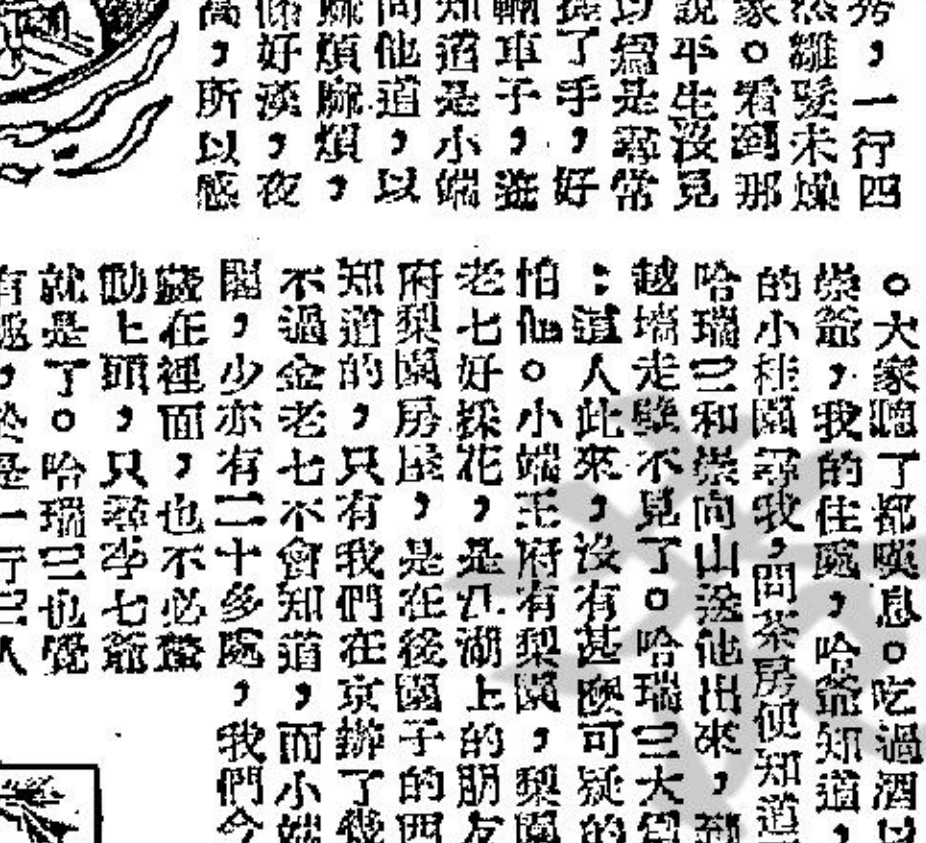 ，一行四
然雛髮未燥
家。看到那
說平生沒見
以爲是尋常
了手，好
輛車子，逛
知道是小端
問他道，以
麻煩麻煩，
條好漢，夜
高，所以感
。大家聽了都嘆息。吃過酒以
崇爺，我的住處，哈爺知道，
的小桂園尋我，問茶房便知道
哈瑞三和崇向山送他出來，到
越墻走壁不見了。哈瑞三大
：道人此來，沒有甚麽可疑的
怕他。小端王府有梨園，梨園
老七好採花，是江湖上的朋友
府梨園房屋，是在後園子的西
知道的，只有我們在京辦了幾
不過金老七不會知道，而小端
園，少亦有二十多處，我們今
藏在裡面，也不必驚
動上頭，只尋李七爺
就是了。哈瑞三也覺
，於是一行三人